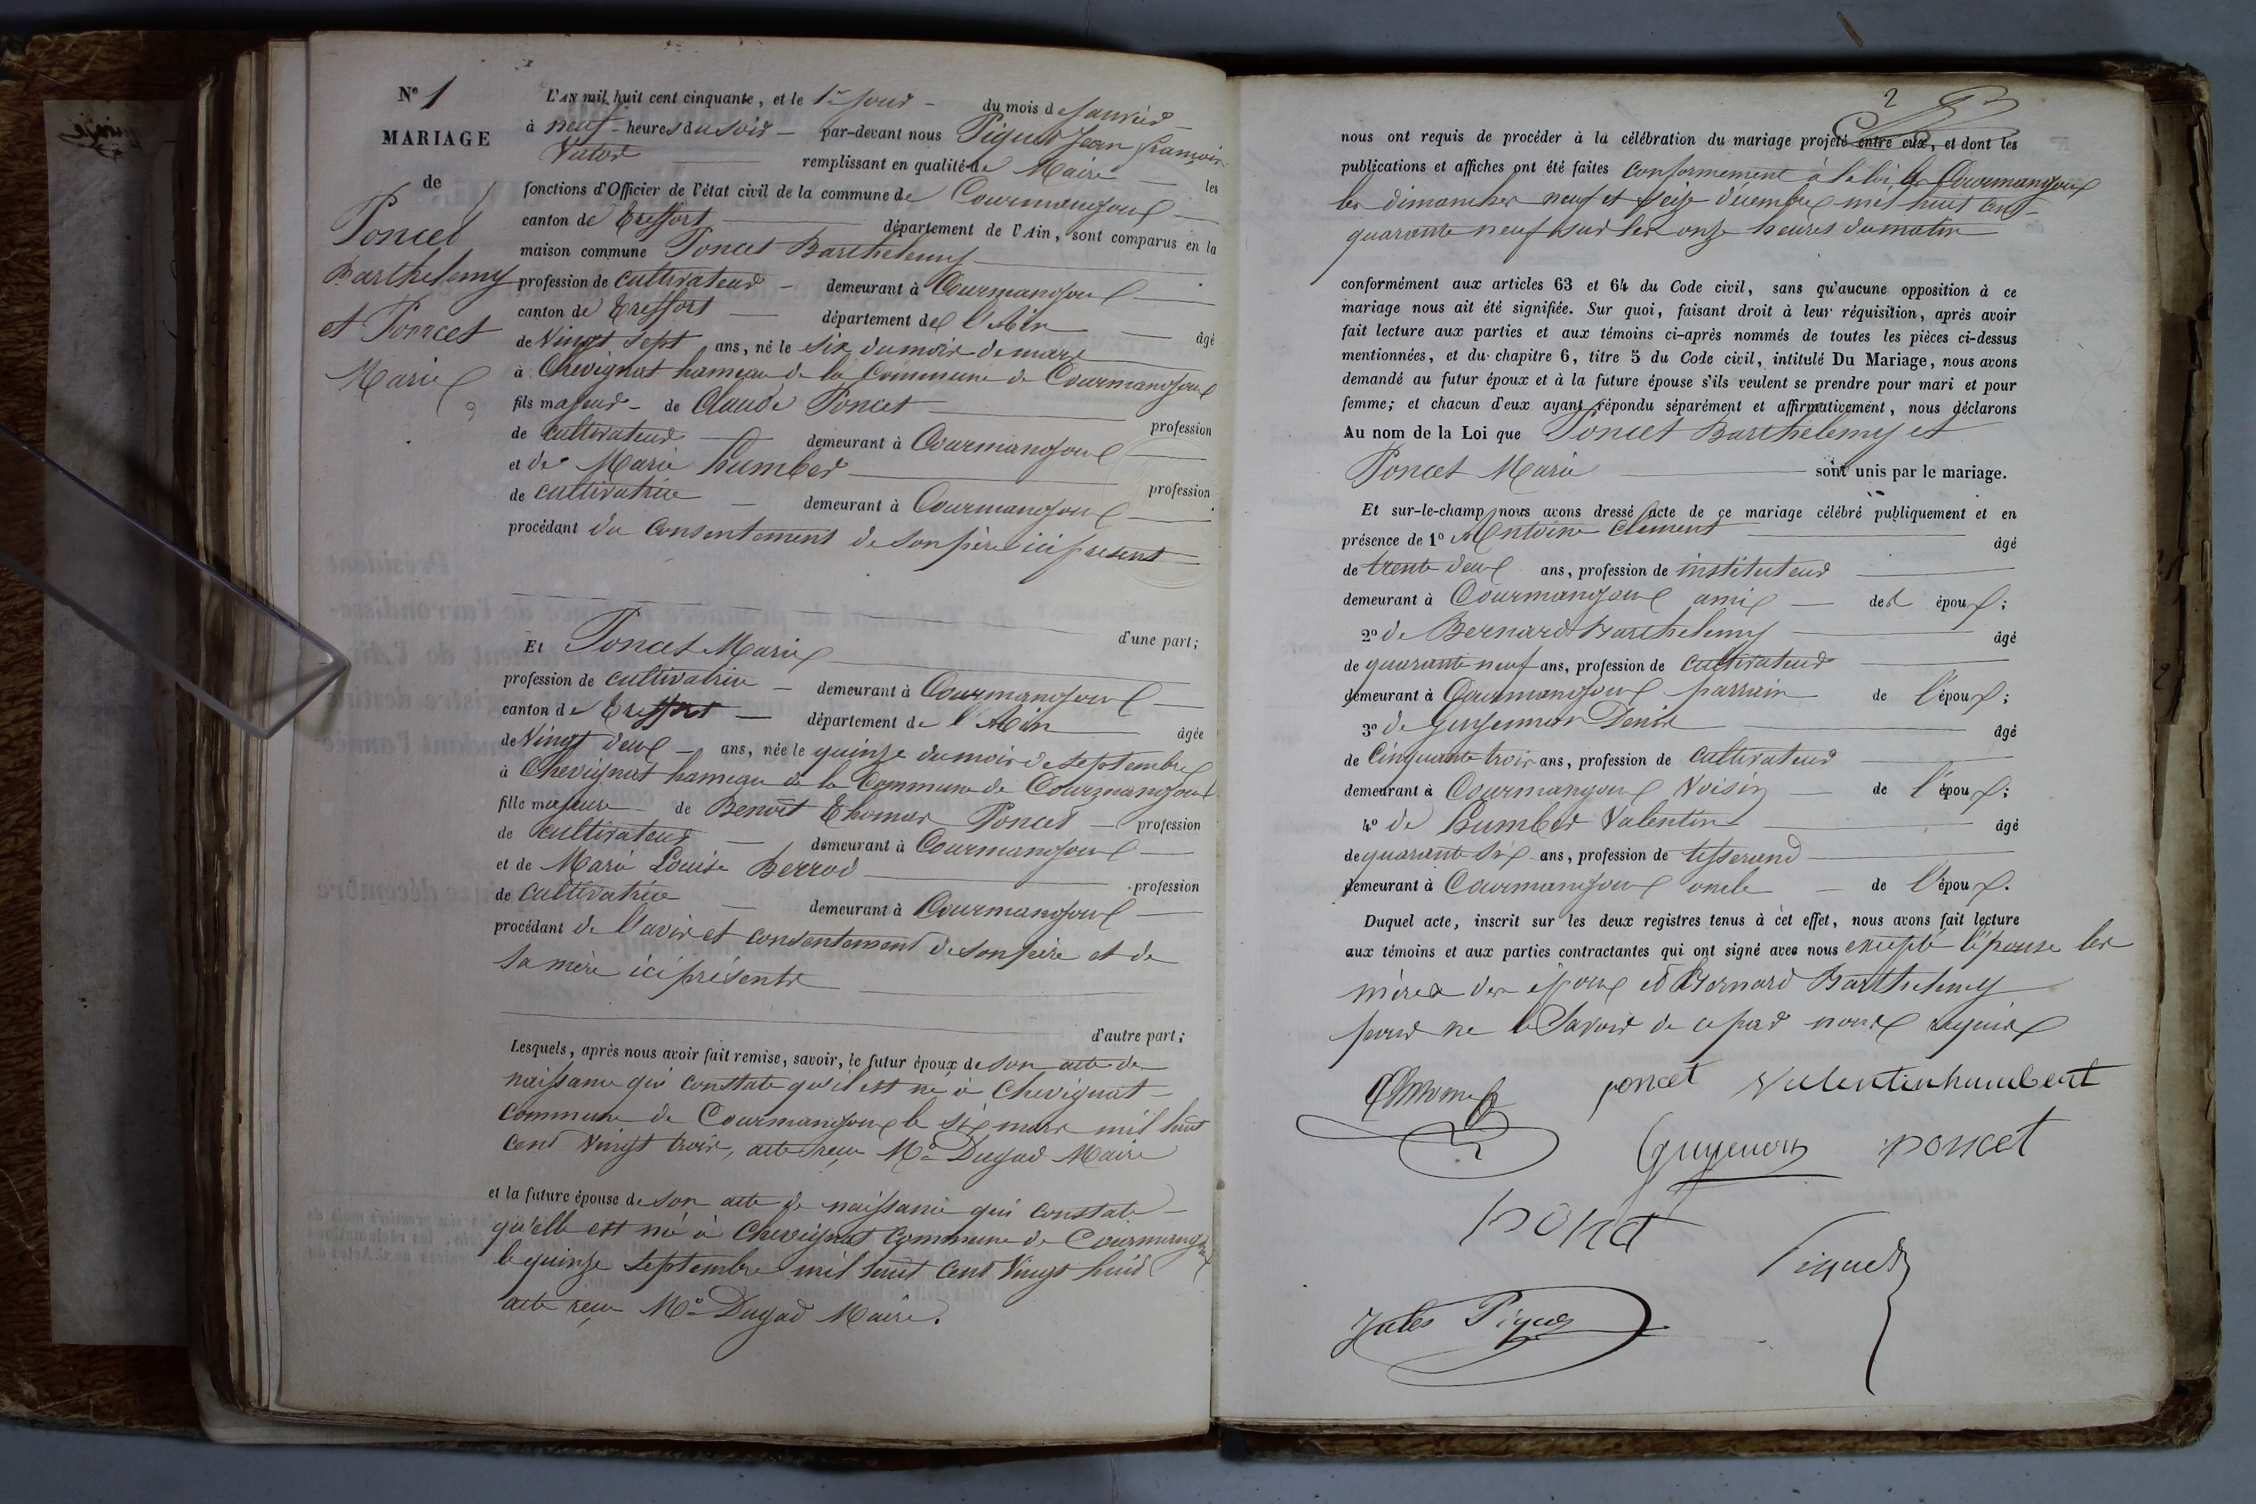 N° 1
MARIAGE
de
Poncet
Barthelemy
et Poncet
Marie
L'AN mil huit cent cinquante, et le 1er jour du mois de janvier
à neuf heures du soir par-devant nous Piquet Jean françois
Victor remplissant en qualité de Maire les
fonctions d'Officier de l'état civil de la commune de Courmangoux
canton de Treffort département de l'Ain, sont comparus en la
maison commune Poncet Barthelemy
profession de cultivateur demeurant à Courmangoux
canton de Treffort département de l'Ain âgé
de Vingt sept ans, né le six du mois de mars
à Chevignat hameau de la Commune de Courmangoux
fils majeur de Claude Poncet profession
de cultivateur demeurant à Courmangoux
et de Marie humber profession
de cultivatrice demeurant à Courmangoux
procédant du consentement de son père ici present
d'une part;
Et Poncet Marie
profession de cultivatrice demeurant à Courmangoux
canton de Treffort département de l'Ain âgée
de Vingt deux ans, née le quinze du mois de septembre
à Chevignat hameau de la Commune de Courmangoux
fille majeure de Benoît Thomas Poncet profession
de cultivateur demeurant à Courmangoux
et de Marie Louise Berrod profession
de cultivatrice demeurant à Courmangoux
procédant de l'avis et consentement de son père et de
sa mère ici présents
d'autre part;
Lesquels, après nous avoir fait remise, savoir, le futur époux de son acte de
naissance qui constate qu'il est né à Chevignat
Commune de Courmangoux le six mars mil huit
cent vingt trois, acte reçu Mr Dugad Maire
et la future épouse de son acte de naissance qui constate
qu'elle est né à Chevignat Commune de Courmangoux
le quinze septembre mil huit cent vingt huit
acte reçu Mr Dugad Maire.
2
nous ont requis de procéder à la célébration du mariage projeté entre eux, et dont les
publications et affiches ont été faites conformement à la loi à Courmangoux
les dimanches neuf et seize décembre mil huit cent
quarante neuf sur les onze heures du matin
conformément aux articles 63 et 64 du Code civil, sans qu'aucune opposition à ce
mariage nous ait été signifiée. Sur quoi, faisant droit à leur réquisition, après avoir
fait lecture aux parties et aux témoins ci-après nommés de toutes les pièces ci-dessus
mentionnées, et du chapitre 6, titre 5 du Code civil, intitulé Du Mariage, nous avons
demandé au futur époux et à la future épouse s'ils veulent se prendre pour mari et pour
femme; et chacun d'eux ayant répondu séparément et affirmativement, nous déclarons
Au nom de la Loi que Poncet Barthelemy et
Poncet Marie sont unis par le mariage.
Et sur-le-champ nous avons dressé acte de ce mariage célébré publiquement et en
présence de 1° Antoine Clément âgé
de trente deux ans, profession de instituteur
demeurant à Courmangoux ami des époux;
2° de Bernard Barthelemy âgé
de quarante neuf ans, profession de cultivateur
demeurant à Courmangoux parrain de l'époux;
3° de Guyennon Denis âgé
de Cinquante trois ans, profession de cultivateur
demeurant à Courmangoux Voisin de l'époux;
4° de humber Valentin âgé
de quarante six ans, profession de tisserand
demeurant à Courmangoux oncle de l'époux.
Duquel acte, inscrit sur les deux registres tenus à cet effet, nous avons fait lecture
aux témoins et aux parties contractantes qui ont signé avec nous excepté l'épouse les
mères des époux et Bernard Barthelemy
pour ne le savoir de ce par nous requis
Antoine poncet Valentin humbert
Guyenon poncet
poncet
Piquet
Jules Piquet